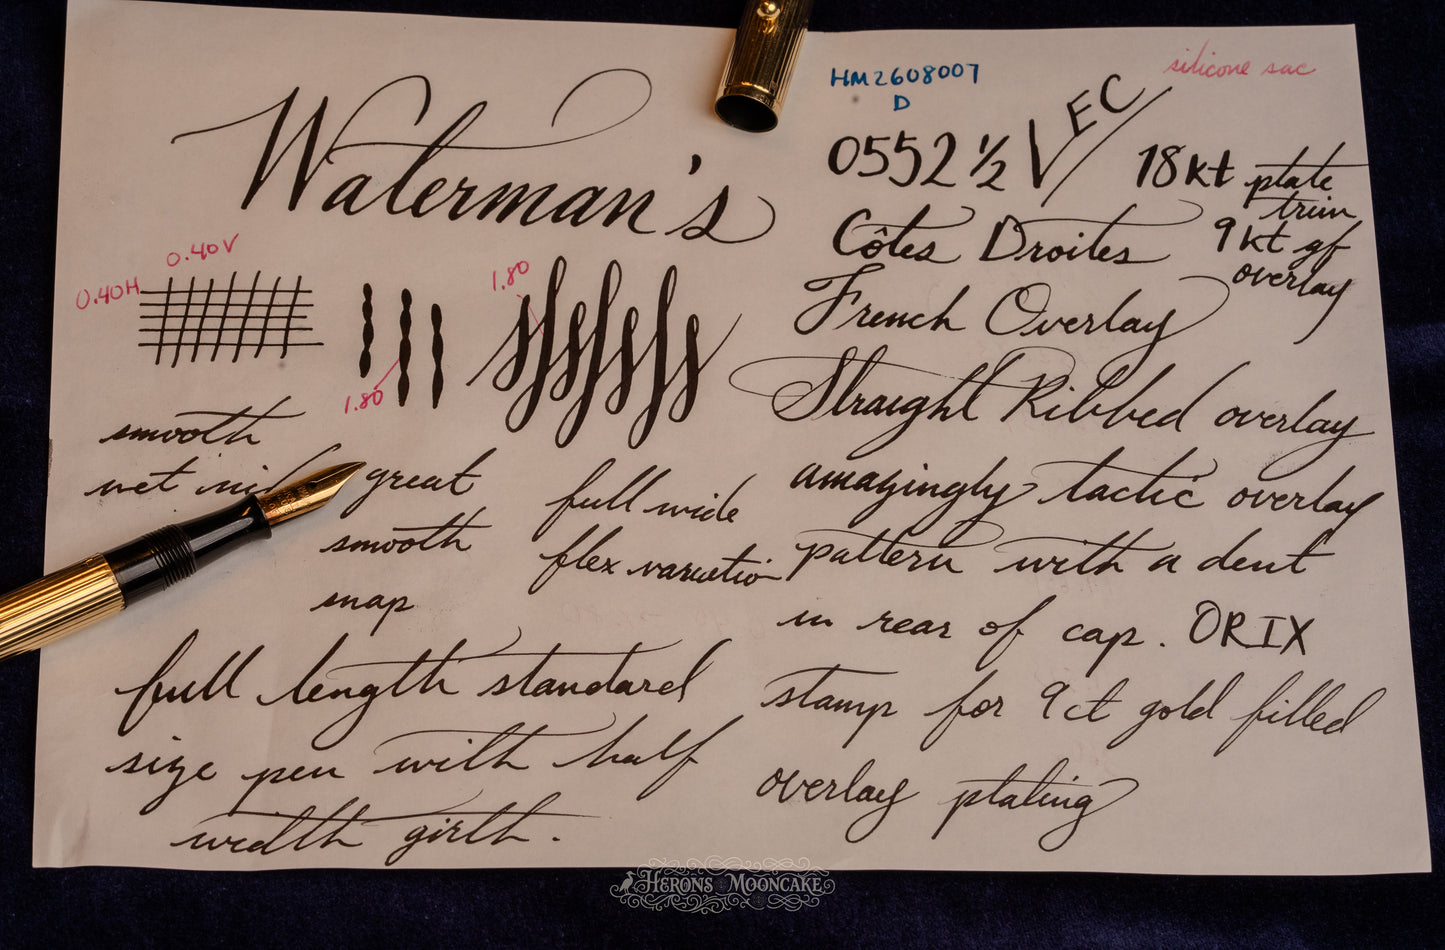 Waterman's
HM2608007
D
silicone sac
0552 ½ V EC
18kt plate
trim
9kt gf
overlay
Côtes Droites
French Overlay
Straight Ribbed overlay
amazingly tactic overlay
pattern with a dent
in rear of cap. ORIX
stamp for 9ct gold filled
overlay plating
0.40V
0.40H
1.80
1.80
smooth
wet
great
smooth
snap
full wide
flex variation
full length standard
size pen with half
width girth.
HERONS MOONCAKE